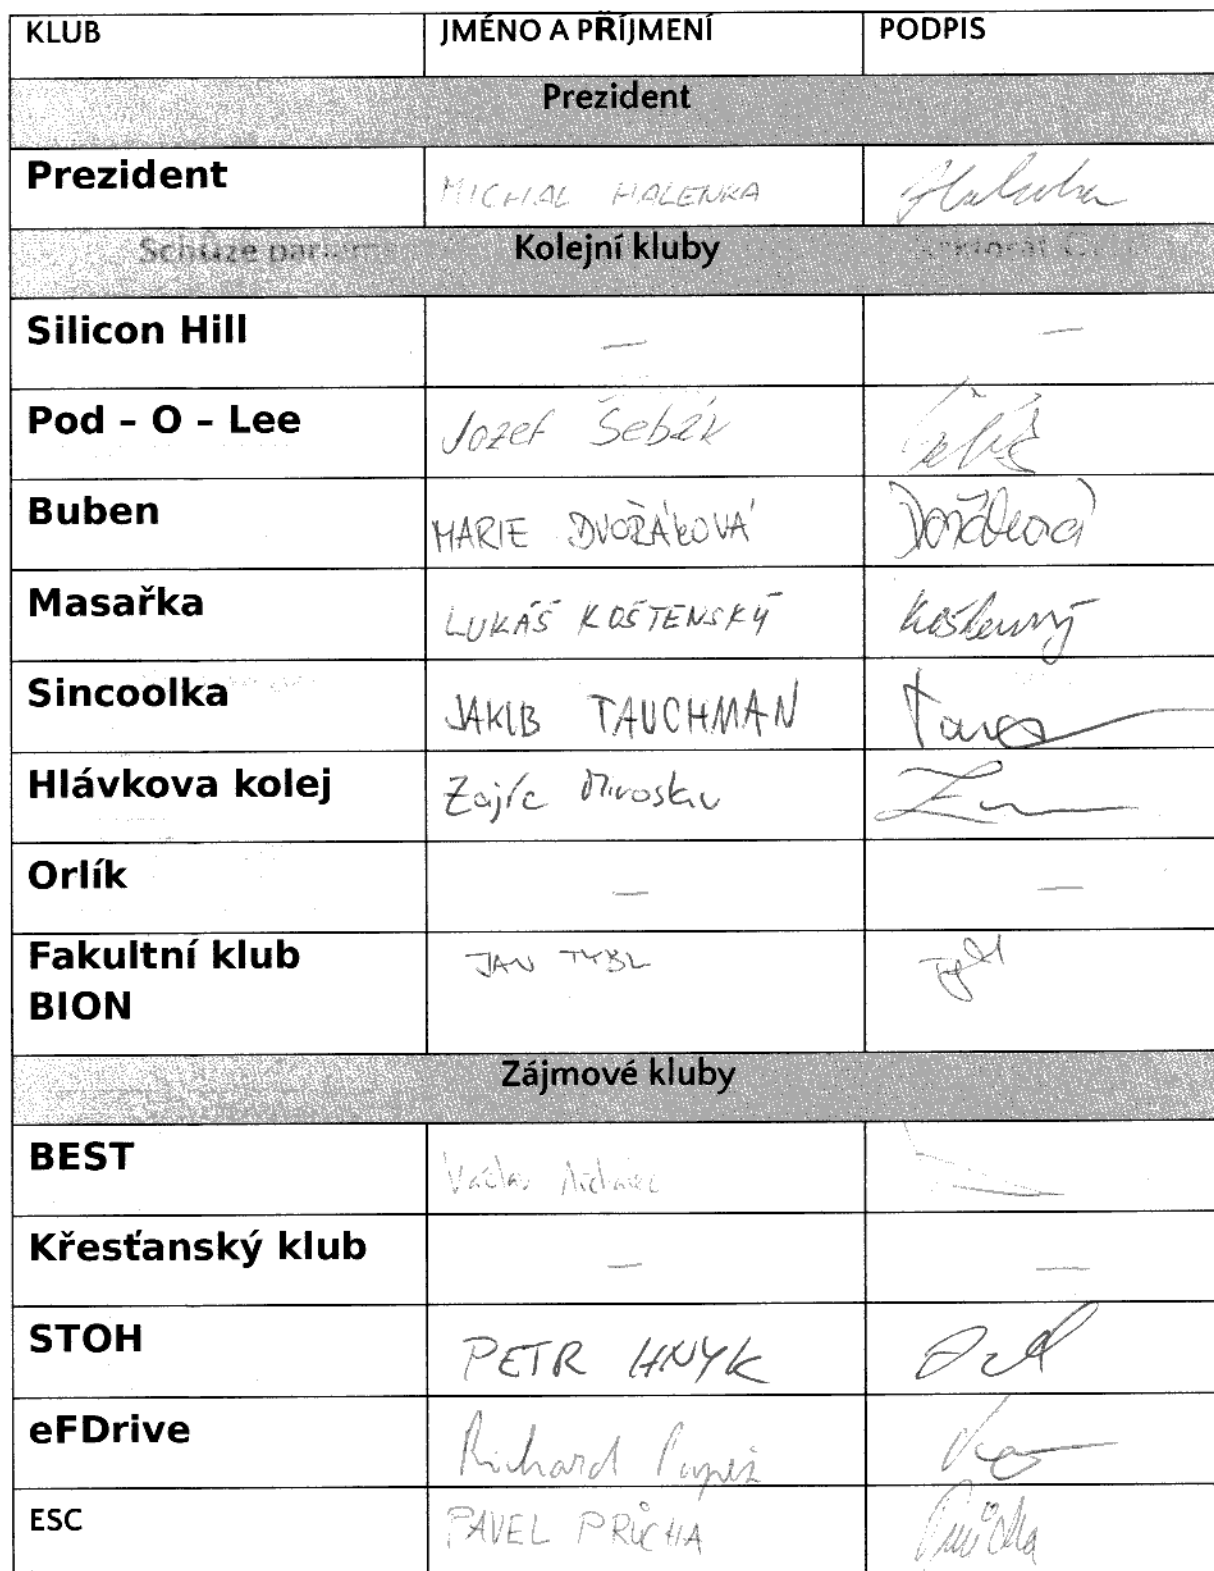 KLUB JMÉNO A PŘÍJMENÍ PODPIS
Prezident
Prezident MICHAL HALENKA
Schůze Kolejní kluby
Silicon Hill — —
Pod – O – Lee Jozef Šebák
Buben MARIE DVOŘÁKOVÁ Dvořáková
Masařka LUKÁŠ KOŠTENSKÝ Koštenský
Sincoolka JAKUB TAUCHMAN
Hlávkova kolej Zajíc Miroslav
Orlík — —
Fakultní klub JAN TYBL
BION
Zájmové kluby
BEST Václav
Křesťanský klub — —
STOH PETR HNYK
eFDrive Richard Papež
ESC PAVEL PRŮCHA Průcha